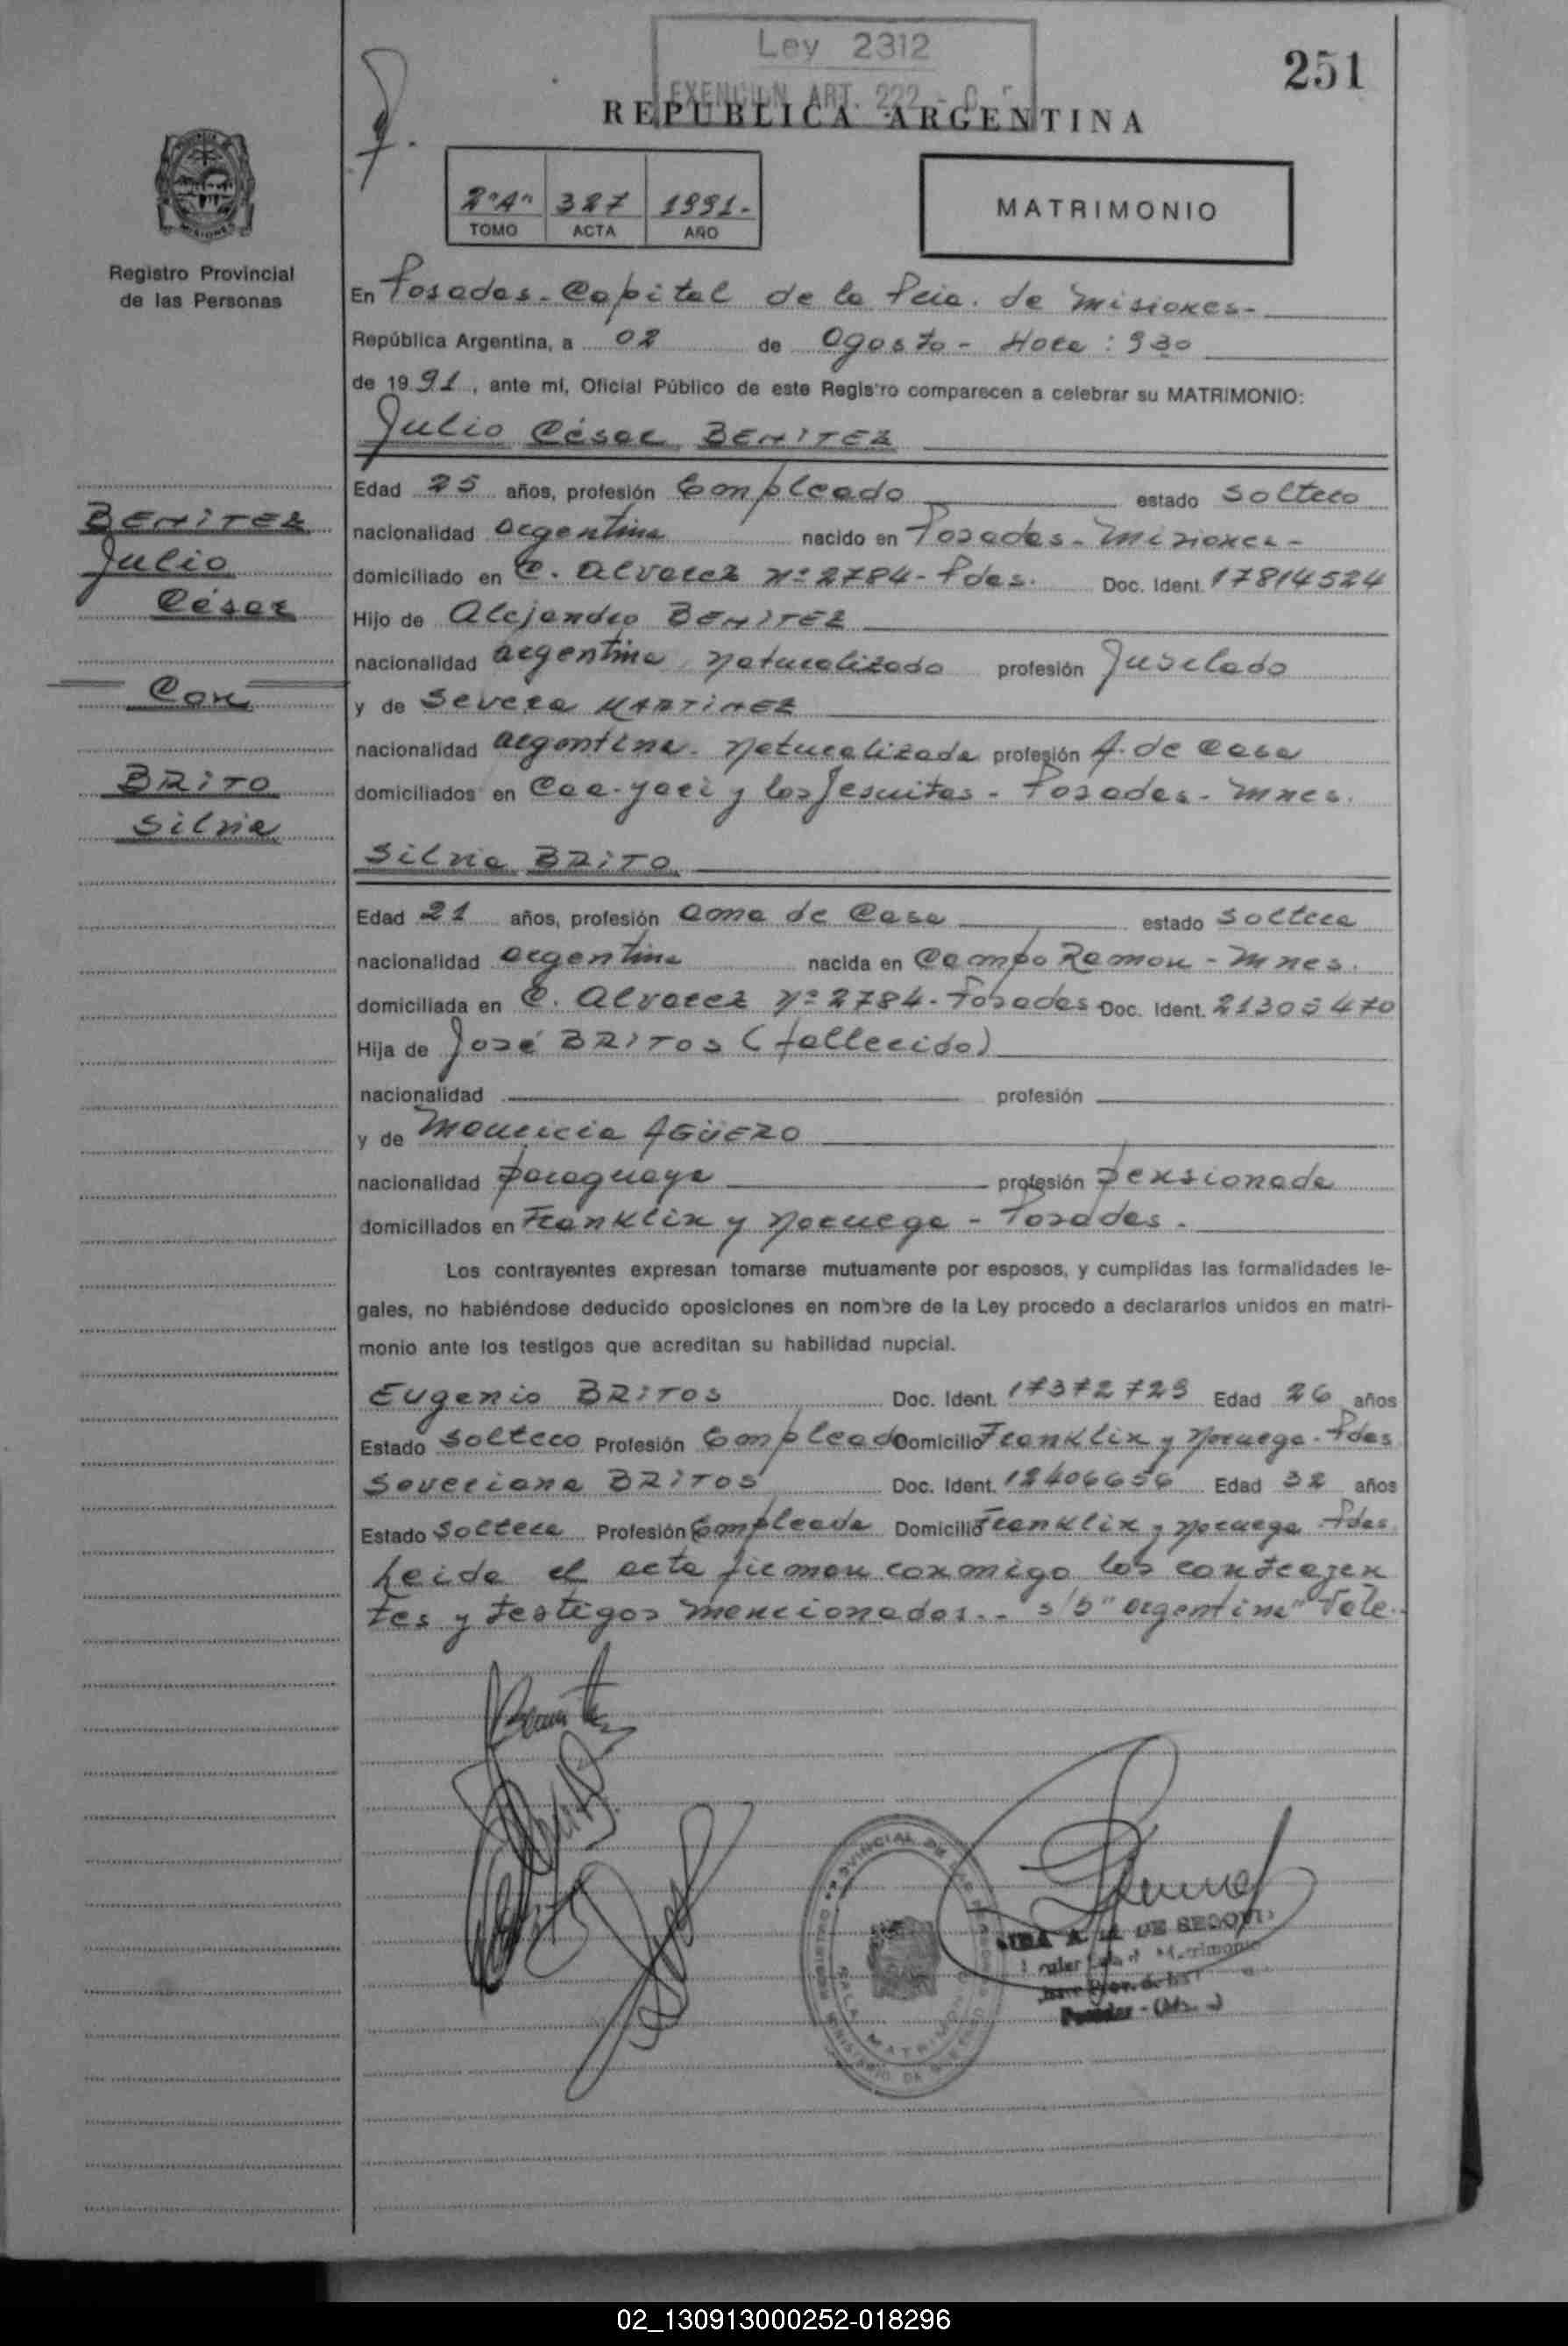 Ley 2312
EXENCION ART. 222
251
REPUBLICA ARGENTINA
2º"A" 327 1991.-
TOMO ACTA AÑO
MATRIMONIO
Registro Provincial
de las Personas
En Posadas - Capital de la Pcia. de Misiones -
República Argentina, a 02 de Agosto - Hora : 930
de 1991, ante mí, Oficial Público de este Registro comparecen a celebrar su MATRIMONIO:
Julio César BENITEZ
Edad 25 años, profesión Empleado estado soltero
nacionalidad argentina nacido en Posadas - Misiones -
domiciliado en C. Alvarez Nº 2784 - Pdas. Doc. Ident. 17814524
Hijo de Alejandro BENITEZ
nacionalidad argentina naturalizado profesión Jubilado
y de Severa MARTINEZ
nacionalidad argentina - naturalizada profesión A. de Casa
domiciliados en Caa-yari y los Jesuitas - Posadas - Mnes.
BENITEZ
Julio
César
Con
BRITO
Silvia
Silvia BRITO
Edad 21 años, profesión ama de Casa estado soltera
nacionalidad argentina nacida en Campo Ramon - Mnes.
domiciliada en C. Alvarez Nº 2784 - Posadas Doc. Ident. 21305470
Hija de José BRITOS (fallecido)
nacionalidad profesión
y de Mauricia AGÜERO
nacionalidad paraguaya profesión pensionada
domiciliados en Franklin y Noruega - Posadas.
Los contrayentes expresan tomarse mutuamente por esposos, y cumplidas las formalidades le-
gales, no habiéndose deducido oposiciones en nombre de la Ley procedo a declararlos unidos en matri-
monio ante los testigos que acreditan su habilidad nupcial.
Eugenio BRITOS Doc. Ident. 17372729 Edad 26 años
Estado soltero Profesión Empleado Domicilio Franklin y Noruega - Pdas
Severiana BRITOS Doc. Ident. 12406656 Edad 32 años
Estado soltera Profesión Empleada Domicilio Franklin y Noruega - Pdas
Leida el acta firman conmigo los contrayen
tes y testigos mencionados.- s/b "argentina" Vale.-
DE SEGOVI
Matrimonio
SALA MATRIMONIO
02_130913000252-018296